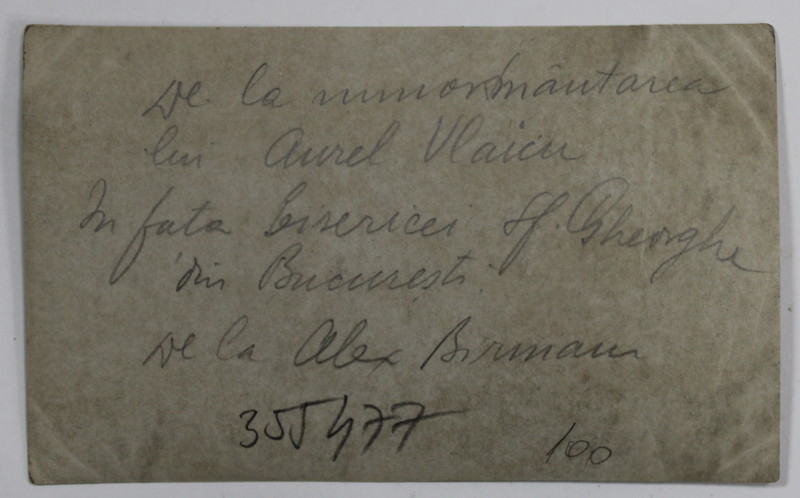 De la inmormântarea
lui Aurel Vlaicu
In fata bisericei Sf. Gheorghe
din Bucuresti.
De la Alex Birman
355477
100